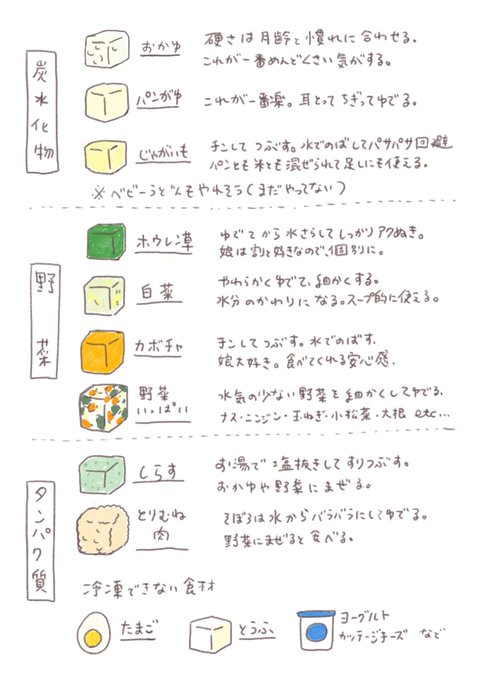 炭水化物
おかゆ
硬さは月齢と慣れに合わせる。
これが一番めんどくさい気がする。
パンがゆ
これが一番楽。耳とってちぎってゆでる。
じゃがいも
チンしてつぶす。水でのばしてパサパサ回避
パンとも米とも混ぜられて足しにも使える。
※ベビーうどんもやれそう(まだやってない)
野菜
ホウレン草
ゆでてから水さらしてしっかりアクぬき。
娘は割と好きなので、個別に。
白菜
やわらかくゆでて、細かくする。
水分のかわりになる。スープ的に使える。
カボチャ
チンしてつぶす。水でのばす.
娘大好き。食べてくれる安心感.
野菜
いっぱい
水気の少ない野菜を細かくしてゆでる.
ナス・ニンジン・玉ねぎ・小松菜・大根 etc...
タンパク質
しらす
お湯で塩抜きしてすりつぶす。
おかゆや野菜にまぜる。
とりむね
肉
そぼろは水からバラバラにしてゆでる。
野菜にまぜると食べる。
冷凍できない食材
たまご
とうふ
ヨーグルト
カッテージチーズ など